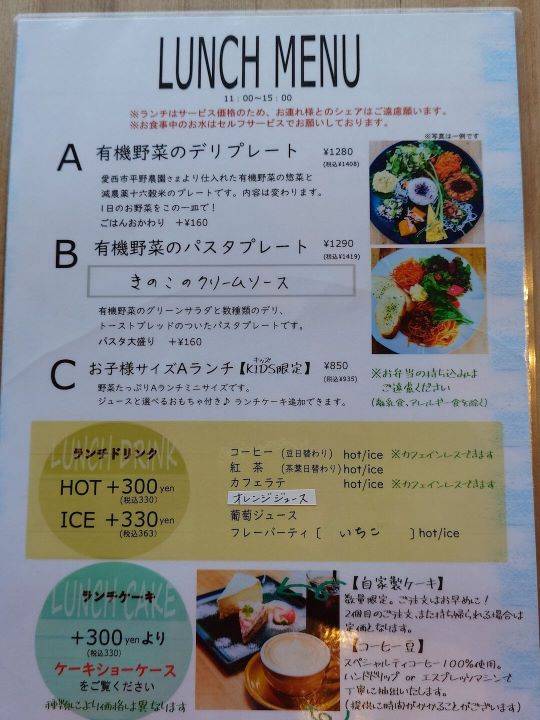 LUNCH MENU
11:00~15:00
※ランチはサービス価格のため、お連れ様とのシェアはご遠慮願います。
※お食事中のお水はセルフサービスでお願いしております。
※写真は一例です
A 有機野菜のデリプレート ¥1280
(税込¥1408)
愛西市平野農園さまより仕入れた有機野菜の惣菜と
減農薬十六穀米のプレートです。内容は変わります。
1日のお野菜をこの一皿で!
ごはんおかわり +¥160
B 有機野菜のパスタプレート ¥1290
(税込¥1419)
きのこのクリームソース
有機野菜のグリーンサラダと数種類のデリ、
トーストブレッドのついたパスタプレートです。
パスタ大盛り +¥160
C お子様サイズAランチ【KIDS限定】 ¥850
キッズ
(税込¥935)
野菜たっぷりAランチミニサイズです。
ジュースと選べるおもちゃ付き♪ ランチケーキ追加できます。
※お弁当の持ち込みは
ご遠慮ください
(離乳食、アレルギー食を除く)
LUNCH DRINK
ランチドリンク
HOT +300yen
(税込330)
ICE +330yen
(税込363)
コーヒー (豆日替わり) hot/ice ※カフェインレスできます
紅 茶 (茶葉日替わり) hot/ice
カフェラテ hot/ice ※カフェインレスできます
オレンジジュース
葡萄ジュース
フレーバーティ [ いちご ] hot/ice
LUNCH CAKE
ランチケーキ
+300yenより
(税込330)
ケーキショーケース
をご覧ください
種類により価格は異なります
【自家製ケーキ】
数量限定。ご注文はお早めに!
2個目のご注文、また持ち帰られる場合は
定価となります。
【コーヒー豆】
スペシャルティコーヒー100%使用。
ハンドドリップ or エスプレッソマシンで
丁寧に抽出いたします。
(提供に時間がかかることがございます)